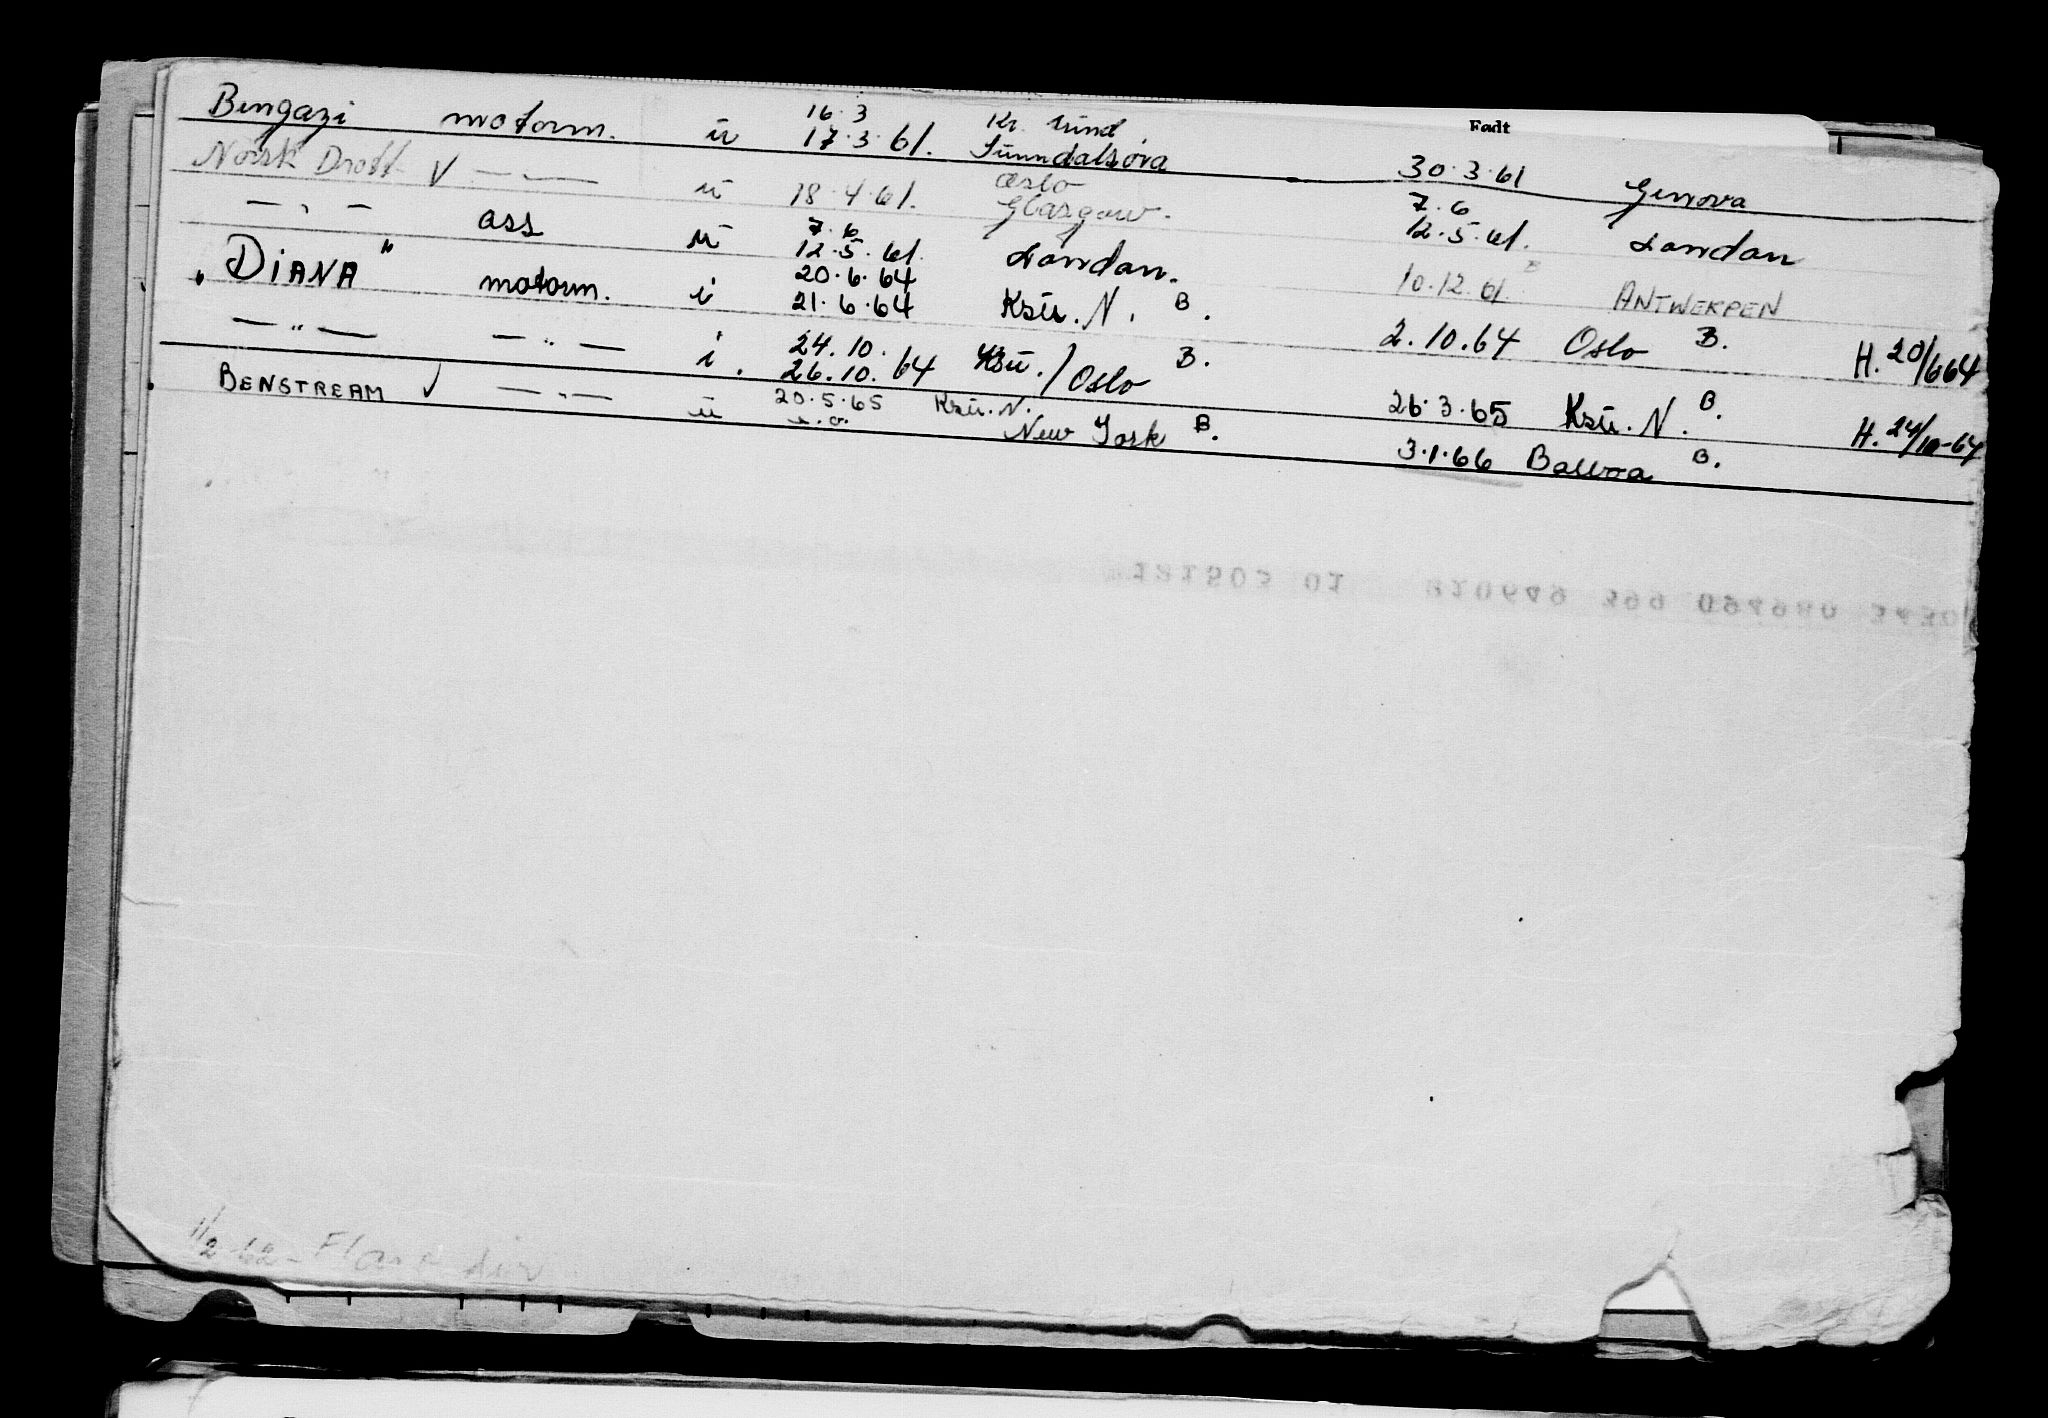 Bengazi motorm. u 16.3 17.3.61. Kr. sund Sunndalsøra 30.3.61 Genova
Norsk Drott V — — u 18.4.61. Oslo Glasgow. 7.6 12.5.61. London
— " — ass u 7.6 12.5.61. London. 10.12.61. B ANTWERPEN
"DIANA" motorm. i 20.6.64 21.6.64 Ksu. N. B. 2.10.64 Oslo B. H. 20/6 64
— " — — " — i. 24.10. 26.10.64 Ksu./Oslo B. 26.3.65 Ksu. N. B. H. 24/10-64
BENSTREAM V — " — u 20.5.65 Ksu. N. New York B. 3.1.66 Balboa B.
Født
1/2 62 -